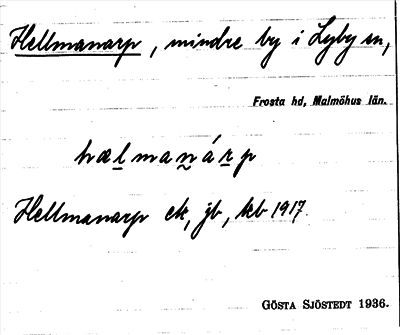 Hellmanarp, mindre by i Lyby sn,
Frosta hd, Malmöhus län.
hælmanárp
Hellmanarp ek, jb, kb 1917.
GÖSTA SJÖSTEDT 1936.